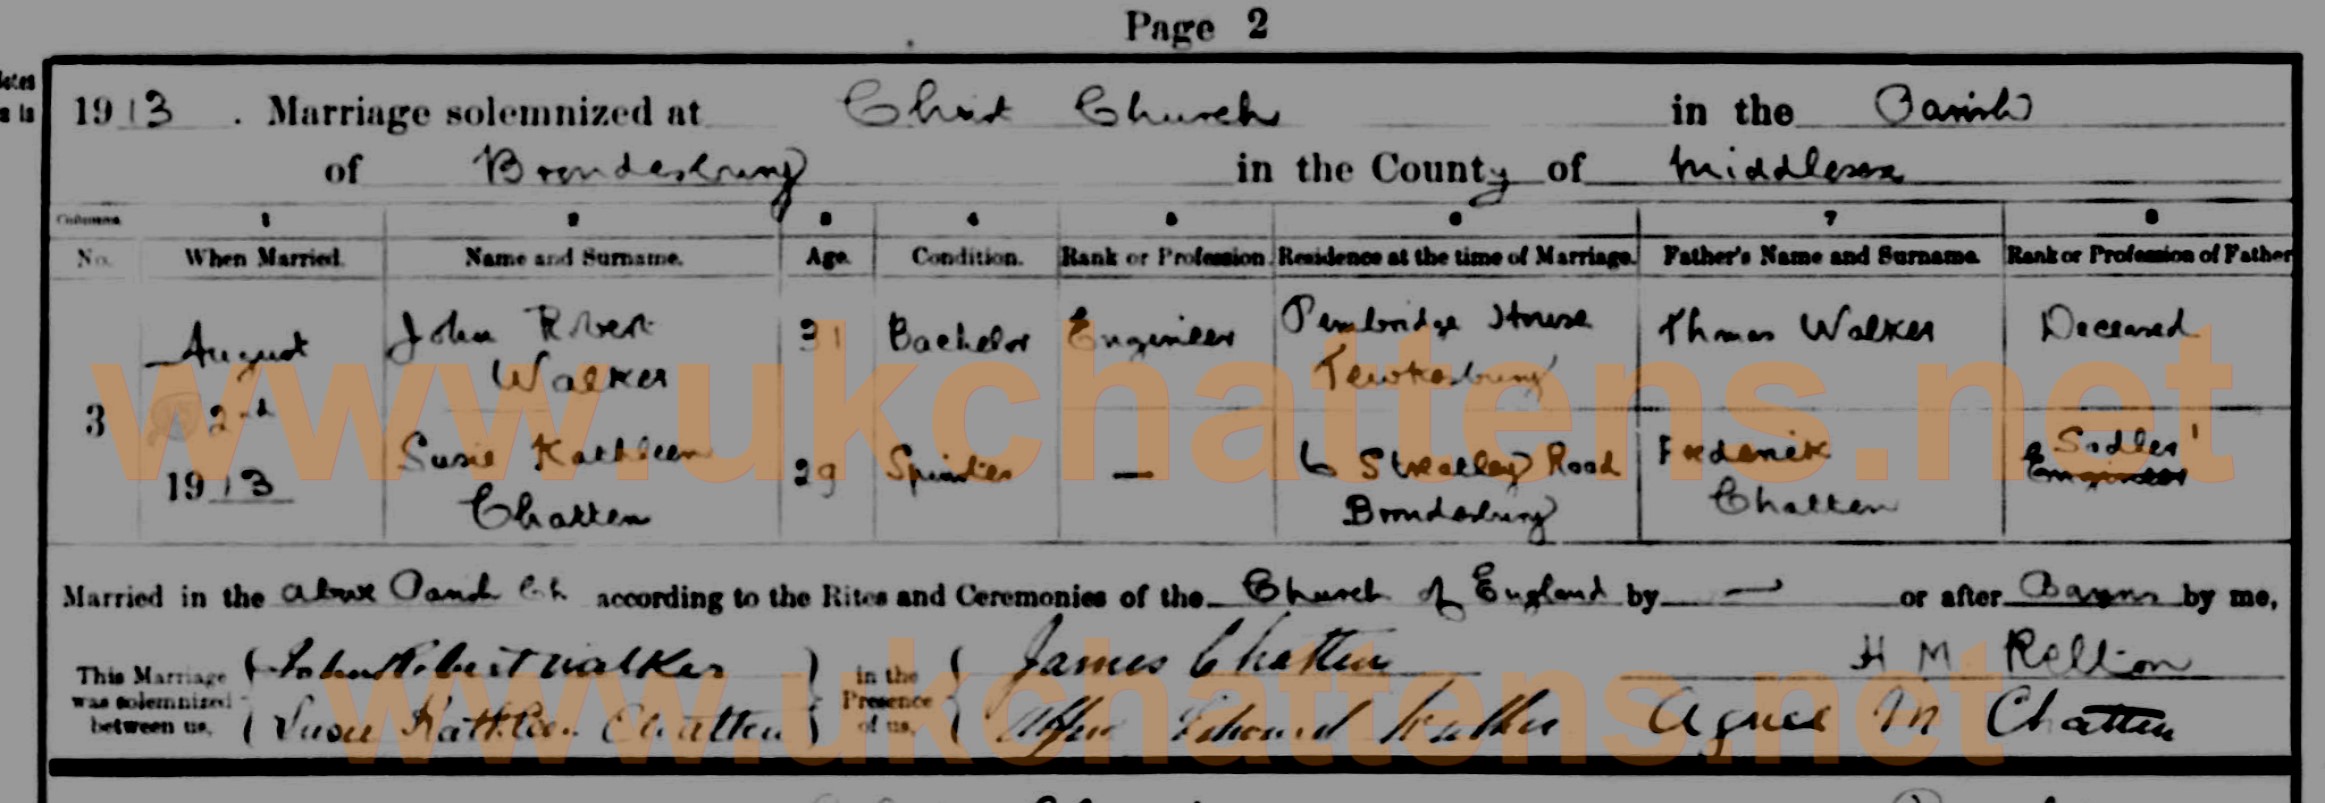 Page 2
1913. Marriage solemnized at Christ Church in the Parish
of Brondesbury in the County of Middlesex
Columns. 1 2 3 4 5 6 7 8
No. When Married. Name and Surname. Age. Condition. Rank or Profession. Residence at the time of Marriage. Father's Name and Surname. Rank or Profession of Father
3 August 2nd 1913
John Robert Walker 31 Bachelor Engineer Pembridge House Tewkesbury Thomas Walker Deceased
Susie Kathleen Chatten 29 Spinster — 6 Streatley Road Brondesbury Frederick Chatten Sadler Engineer
Married in the above Parish Ch according to the Rites and Ceremonies of the Church of England by — or after Banns by me,
This Marriage was solemnized between us, John Robert Walker
Susie Kathleen Chatten
in the Presence of us, James Chatten H M
Edward Walker Agnes M Chatten
www.ukchattens.net
www.ukchattens.net